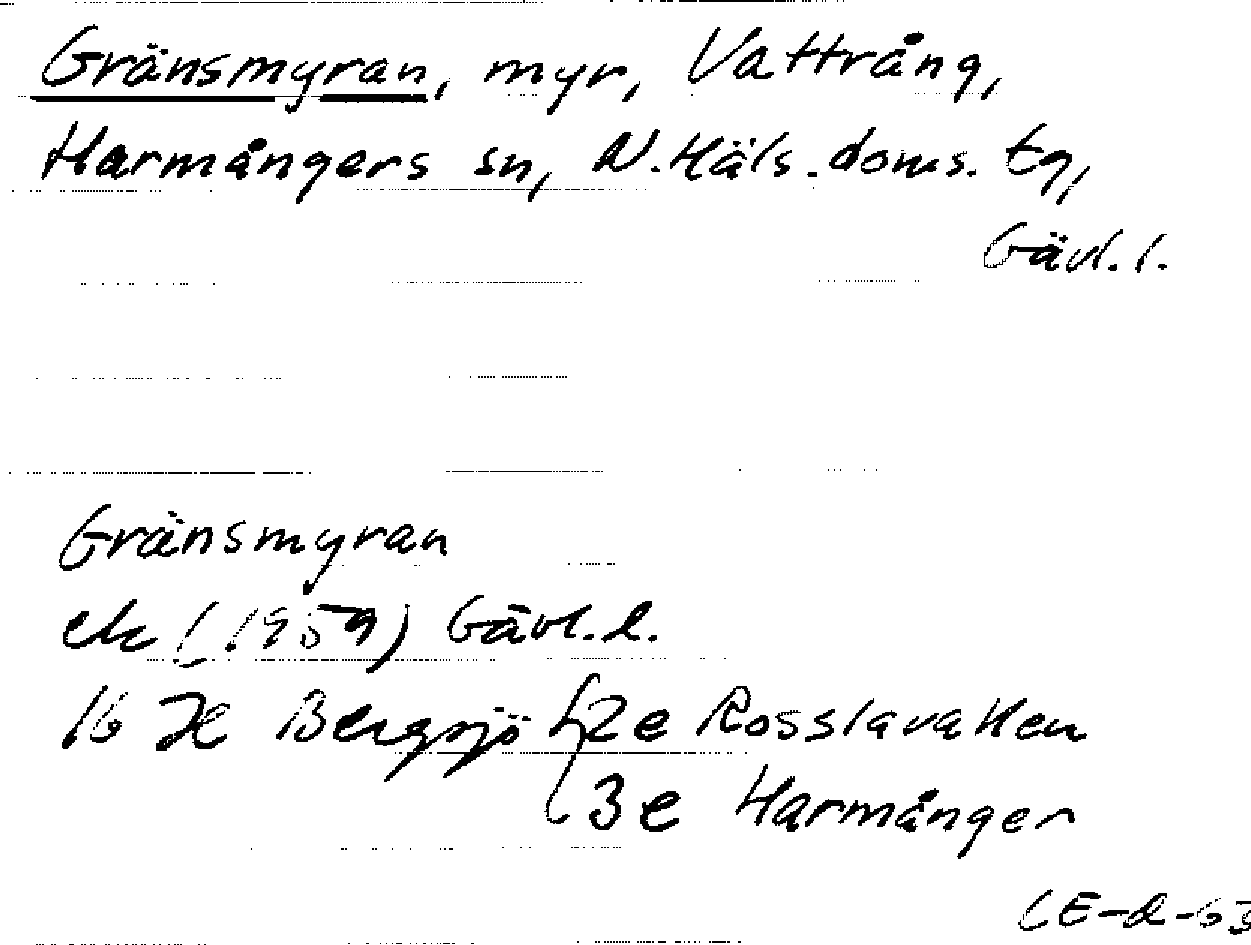 Gränsmyran, myr, Vattrång,
Harmångers sn, N. Häls. doms. tg,
Gävl. l.
Gränsmyran
ek (1959) Gävl. l.
16 H Bergsjö { 2e Rosslavallen
3e Harmånger
CE-d-63